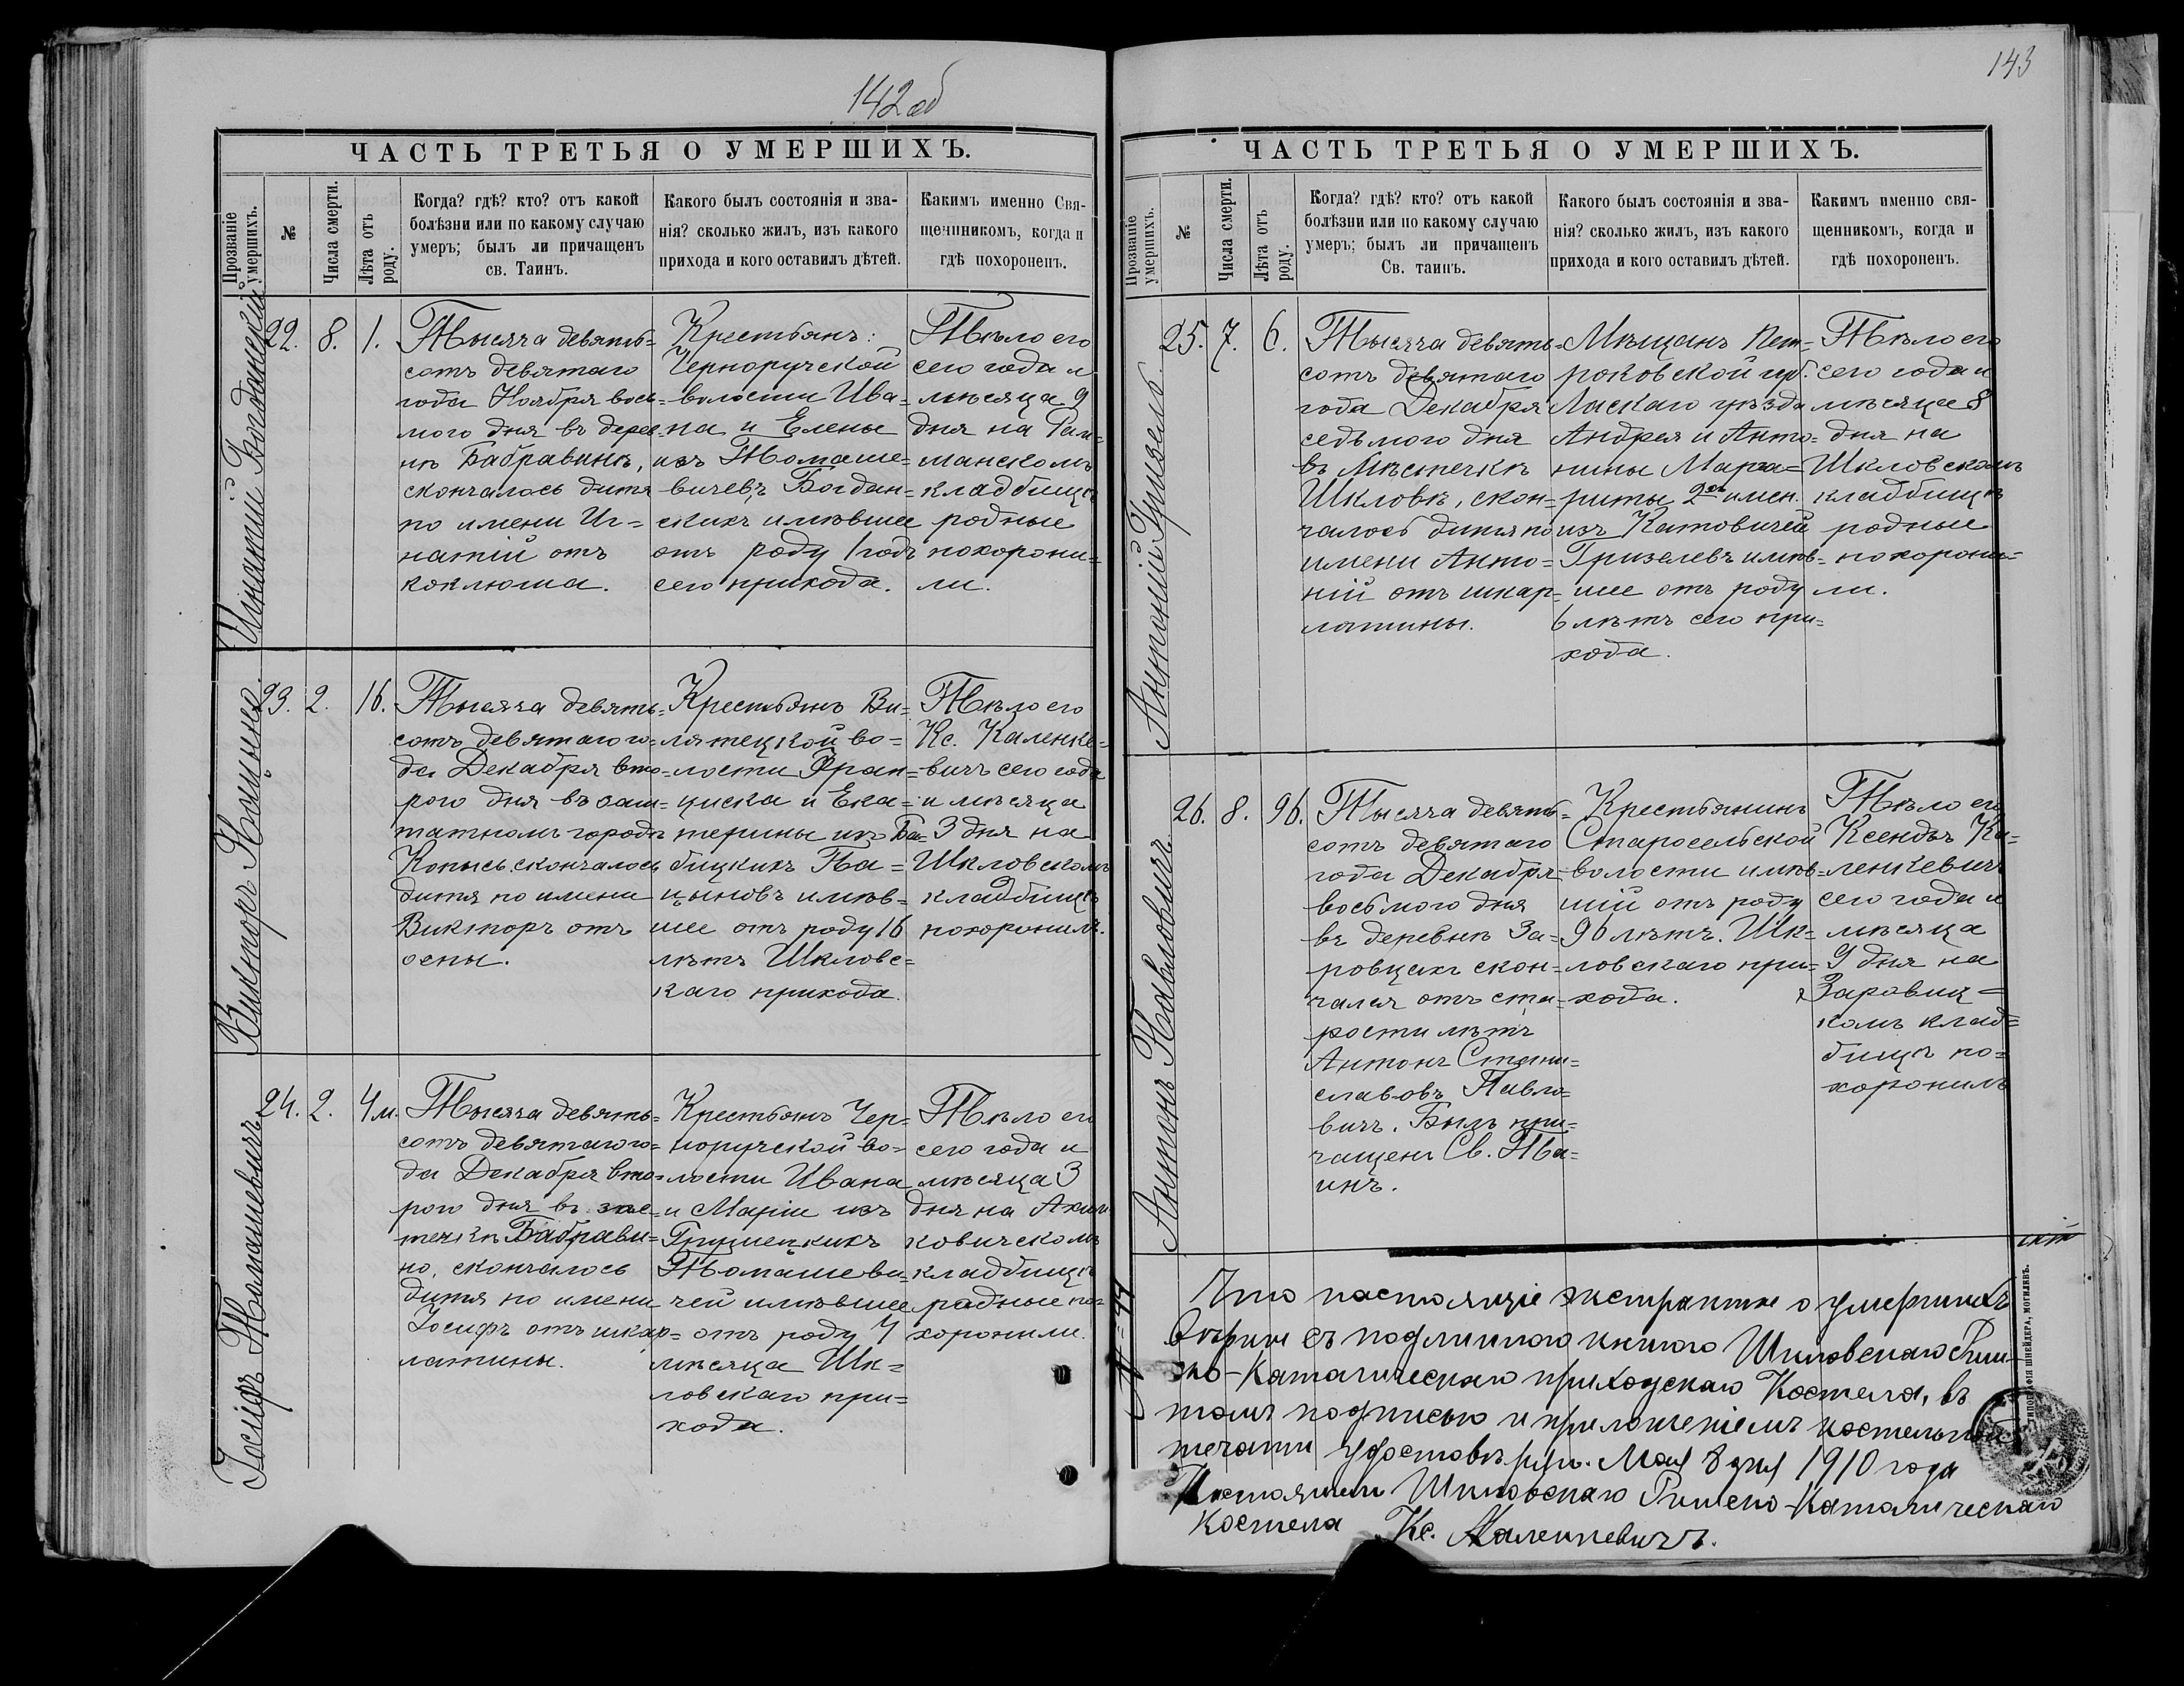 142 об
ЧАСТЬ ТРЕТЬЯ О УМЕРШИХЪ.
Прозваніе умершихъ.
№
Числа смерти.
Лѣта отъ роду.
Когда? гдѣ? кто? отъ какой
болѣзни или по какому случаю
умеръ; былъ ли причащенъ
св. Таинъ.
Какого былъ состоянія и зва-
нія? сколько жилъ, изъ какого
прихода и кого оставилъ дѣтей.
Каким именно Свя-
щенникомъ, когда и
гдѣ похороненъ.
Игнатій Богданскій
22.
8.
1.
Тысяча девять=
сотъ девятаго
года Ноября вось=
мого дня въ дерев=
нѣ Бабравинѣ,
скончалось дитя
по имени Иг=
натій отъ
коклюша.
Крестьянъ:
Черноручской
волости Ива=
на и Елены
изъ Томаше=
вичевъ Богдан=
скихъ имѣвшее
отъ роду 1 годъ
сего прихода.
Тѣло его
сего года и
мѣсяца 9
дня на Рай=
манскомъ
кладбищѣ
родные
похорони=
ли.
Викторъ Пацына
23.
2.
16.
Тысяча девять=
сотъ девятаго го=
да Декабря вто=
рого дня въ заш=
татномъ городѣ
Копысь скончалось
дитя по имени
Викторъ отъ
оспы.
Крестьянъ Ви=
лятецкой во=
лости Фран=
циска и Ека=
терины изъ Ба=
бицкихъ Па=
цыновъ имѣв=
шее отъ роду 16
лѣтъ Шкловс=
каго прихода.
Тѣло его
Кс. Каленке=
вичъ сего года
и мѣсяца
3 дня на
Шкловскомъ
кладбищѣ
похоронилъ.
Іосифъ Томашевичъ
24.
2.
4 м.
Тысяча девять=
сотъ девятаго го=
да Декабря вто=
рого дня въ
Бабрави=
но, скончалось
дитя по имени
Іосифъ отъ шкар=
латины.
Крестьянъ Чер=
норучской во=
лости Ивана
и Маріи изъ
Грушецкихъ
Томашеви=
чей имѣвшее
отъ роду 4
мѣсяца Шк=
ловскаго при=
хода.
Тѣло его
сего года и
мѣсяца 3
дня на
ковичскомъ
кладбищѣ
родные по=
хоронили.
143
ЧАСТЬ ТРЕТЬЯ О УМЕРШИХЪ.
Прозваніе умершихъ.
№
Числа смерти.
Лѣта отъ роду.
Когда? гдѣ? кто? отъ какой
болѣзни или по какому случаю
умеръ; былъ ли причащенъ
Св. таинъ.
Какого былъ состоянія и зва-
нія? сколько жилъ, изъ какого
прихода и кого оставилъ дѣтей.
Каким именно свя-
щенникомъ, когда и
гдѣ похороненъ.
Антоній Гризель
25.
7.
6.
Тысяча девять=
сотъ девятаго
года Декабря
седьмого дня
въ Мѣстечкѣ
Шкловѣ, скон=
чалось дитя по
имени Анто=
ній отъ шкар=
латины.
Мѣщанъ Пет=
роковской губ.
Ласкаго уѣзда
Андрея и Анто=
нины Марга=
риты 2хъ имен.
изъ Катовичей
Гризелевъ имѣв=
шее отъ роду
6 лѣтъ сего при=
хода.
Тѣло его
сего года и
мѣсяца 8
дня на
Шкловскомъ
кладбищѣ
родные
похорони=
ли.
Антонъ Павловичъ
26.
8.
96.
Тысяча девять=
сотъ девятаго
года Декабря
восьмого дня
въ деревнѣ За=
ровцахъ скон=
чался отъ ста=
рости лѣтъ
Антонъ Стани=
славовъ Павло=
вичъ. Былъ при=
чащенъ Св. Та=
инъ.
Крестьянинъ
Старосельской
волости имѣв=
шій отъ роду
96 лѣтъ. Шк=
ловскаго при=
хода.
Тѣло его
Ксендзъ Ка=
ленкевичъ
сего года и
мѣсяца
9 дня на
Заровиц=
комъ клад=
бищѣ по=
хоронилъ
№ 44
Что настоящіе экстракты о умершихъ
вѣрны съ подлинною книгою Шкловскаго Рим-
ско-Католическаго приходскаго Костела, въ
томъ подписью и приложеніемъ костельной
печати удостовѣряю. Мая 8 дня 1910 года
Настоятель Шкловскаго Римско-Католическаго
Костела Кс. Каленкевичъ.
ТИПОГРАФІЯ ШНЕЙДЕРА, МОГИЛЕВЪ.